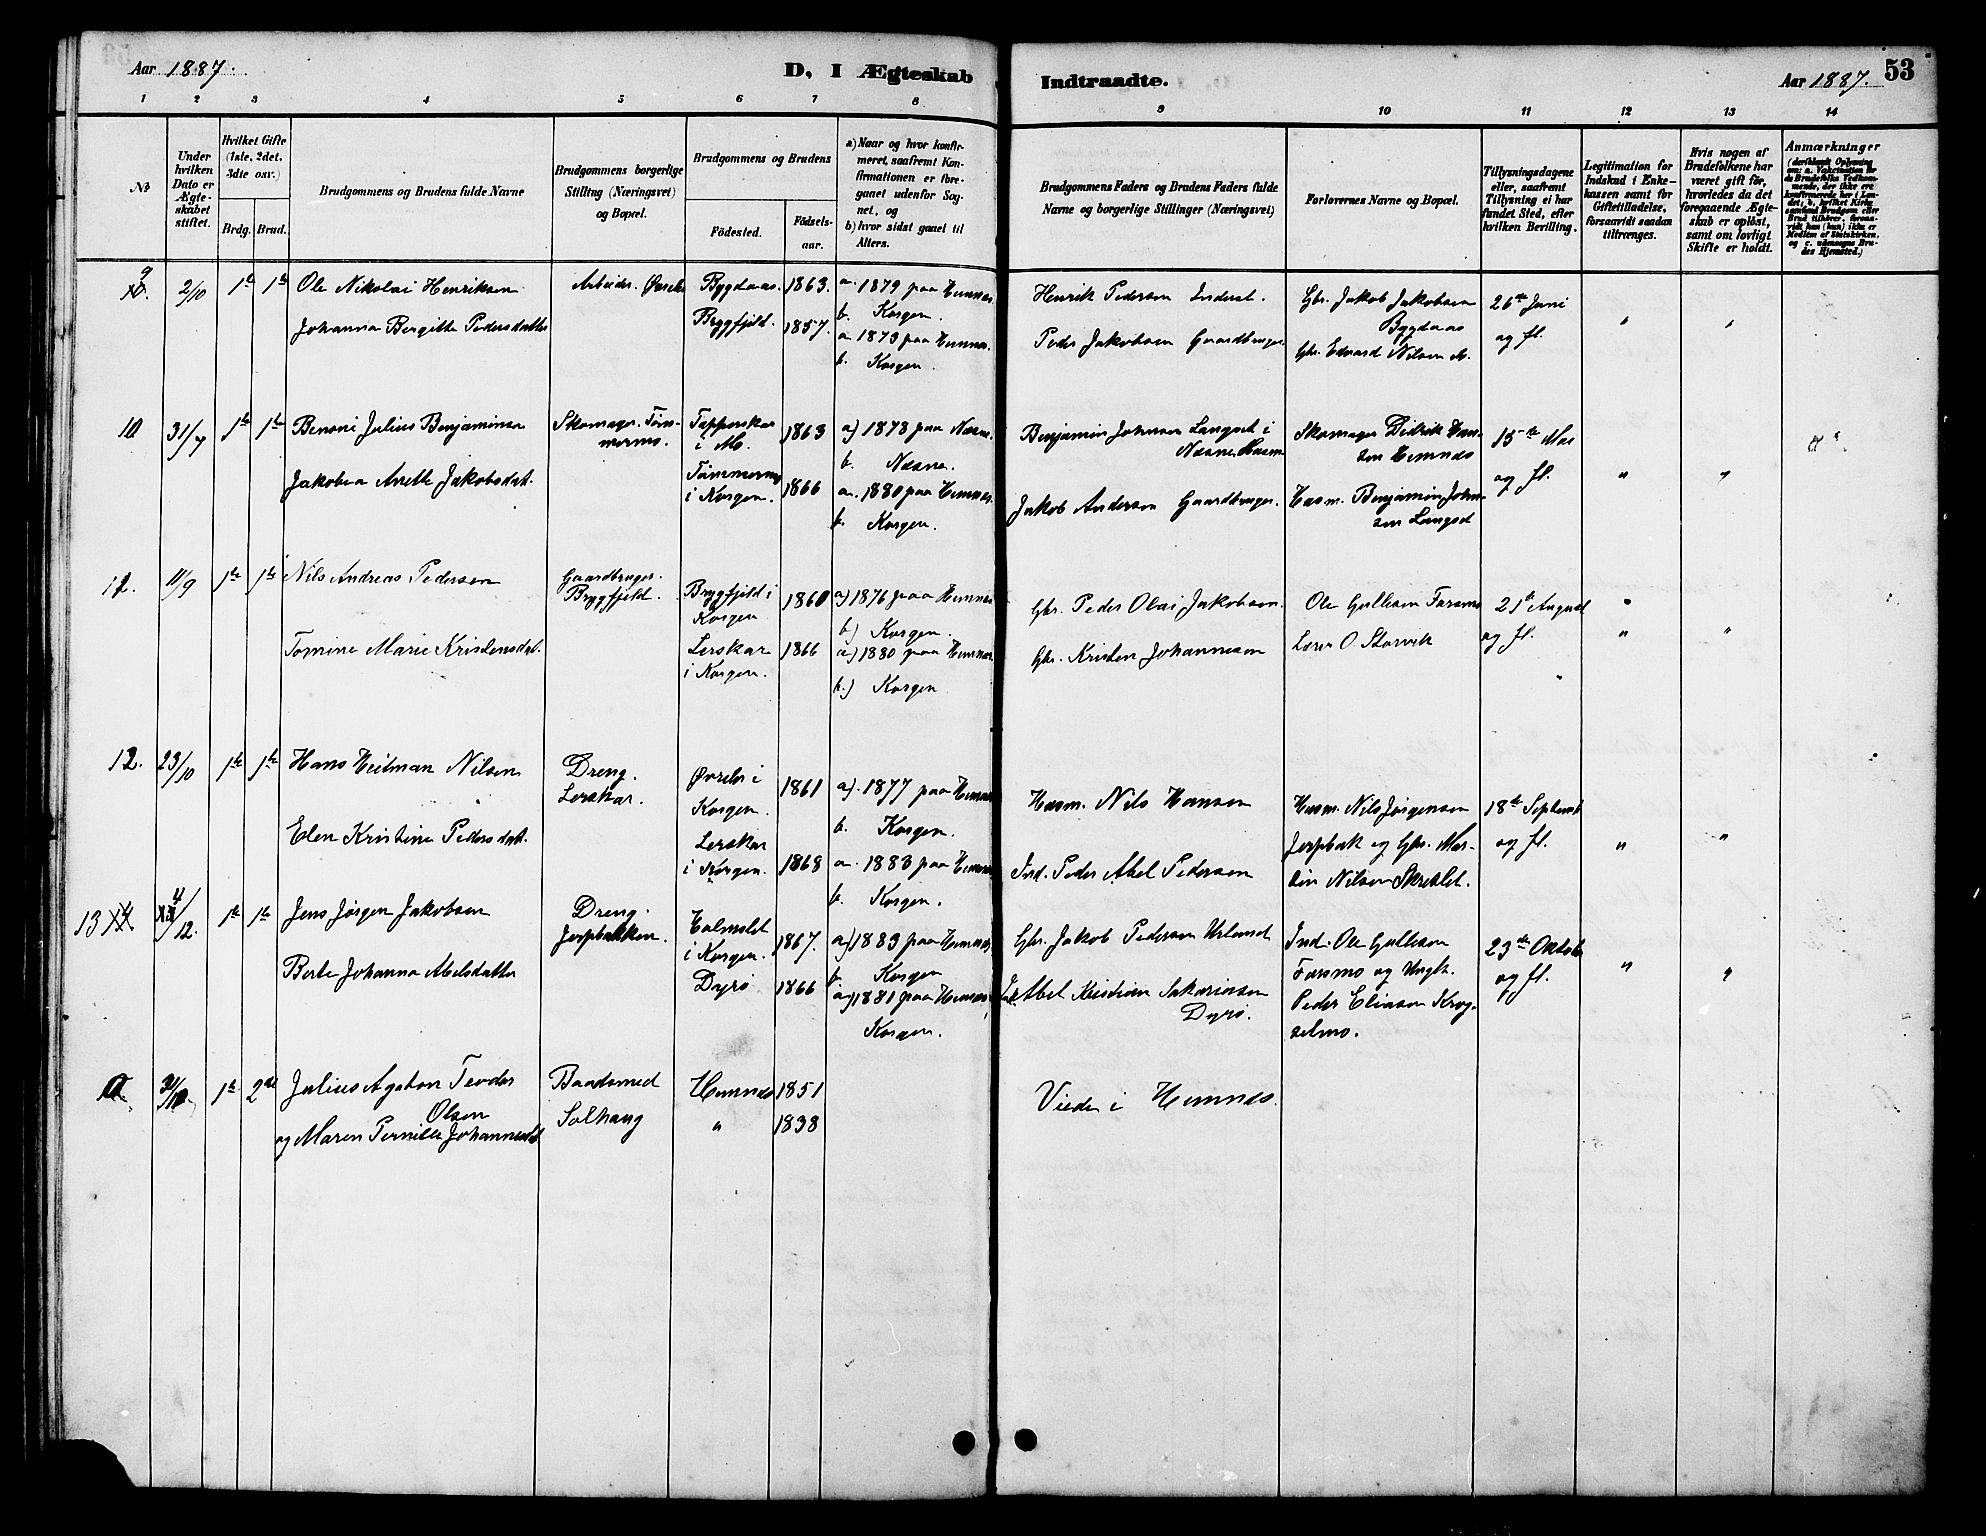 Aar 1887.
D, I Ægteskab
Indtraadte.
Aar 1887.
53
1 2 3 4 5 6 7 8
9 10 11 12 13 14
№
Under hvilken Dato er Ægteskabet stiftet.
Hvilket Gifte (1ste, 2det, 3die osv.)
Brdg. Brud.
Brudgommens og Brudens fulde Navne
Brudgommens borgerlige Stilling (Næringsvei) og Bopæl.
Brudgommens og Brudens
Fødested.
Fødselsaar.
a) Naar og hvor konfirmeret, saafremt Konfirmationen er foregaaet udenfor Sognet, og
b) hvor sidst gaaet til Alters.
Brudgommens Faders og Brudens Faders fulde Navne og borgerlige Stillinger (Næringsvei)
Forlovernes Navne og Bopæl.
Tillysningsdagene eller, saafremt Tillysning ei har fundet Sted, efter hvilken Bevilling.
Legitimation for Indskud i Enkekassen samt for Giftetilladelse, forsaavidt saadan tiltrænges.
Hvis nogen af Brudefolkene har været gift før, hvorledes da det foregaaende Ægteskab er opløst, samt om lovligt Skifte er holdt.
Anmærkninger
9 2/10 1ste 1ste Ole Nikolai Henriksen Arbeider. Bygdaas. 1863. a. 1879 paa Hemnæs
b. Korgen.
Johanna Bergitte Pedersdatter Brygfjeld. 1857. a. 1873 paa Hemnæs.
b. Korgen.
Henrik Pedersen Inderst. Gbr. Jakob Jakobsen Bygdaas 26de Juni
Peder Jakobsen Gaardbruger. Gbr. Edvard Nilsen og fl. " "
10 31/7 1ste 1ste Benoni Julius Benjaminsen Skomager. Tømmermo. Tapperskar i Mo. 1863 a) 1878 paa Næsne.
b. Næsne.
Jakobea Anette Jakobsdat. Tømmermo i Korgen. 1866 a. 1880 paa Hemnæs.
b. Korgen.
Benjamin Johnsen Langset i Næsne Husm Skomager Didrik Hansen Hemnæs 15de Mai
Jakob Andersen Gaardbruger. Husm. Benjamin Johnsen Langset og fl. " "
12. 11/9 1ste 1ste Nils Andreas Pedersen Gaardbruger. Brygfjeld. Brygfjeld i Korgen 1860 a) 1876 paa Hemnæs
b) Korgen.
Tomine Marie Kristensdat. Lerskar i Korgen. 1866 a) 1880 paa Hemnæs
b.) Korgen
Gbr. Peder Olai Jakobsen. Ole Gullesen Farsmo 21de August "
Gbr. Kristen Johannesen Lærer O. Storvik og fl. " "
12. 23/10 1ste 1ste Hans Heitman Nilsen Dreng. Lerskar. Øvreler i Korgen. 1861 a). 1877 paa Hemnæs
b. Korgen.
Elen Kristine Pedersdat. Lerskar i Korgen. 1868 a. 1883 paa Hemnæs
b. Korgen.
Husm. Nils Hansen Husm. Nils Jørgensen 18de Septemb
Ind. Peder Abel Pedersen Jerpbak og Gbr. Martin Nilsen Skreslet. og fl. " "
13 4/12. 1ste 1ste Jens Jørgen Jakobsen Dreng. Jerpbakken. Halmslet i Korgen. 1867. a) 1883 paa Hemnæs
b. Korgen
Berte Johanna Abelsdatter Dyrø 1866 a) 1881 paa Hemnæs
Korgen.
Gbr. Jakob Pedersen Ind. Ole Gullesen 23de Oktob
Ind. Abel Kristian Sakariasen Dyrø. Farsmo og Ungk. Peder Eliasen Krogselmo. og fl. " "
1ste 2det Julius Agaton Teodor Olsen Baadsmed Hemnæs 1851
og Maren Pernille Johannesdat Solhaug " 1838
Viede i Hemnæs.